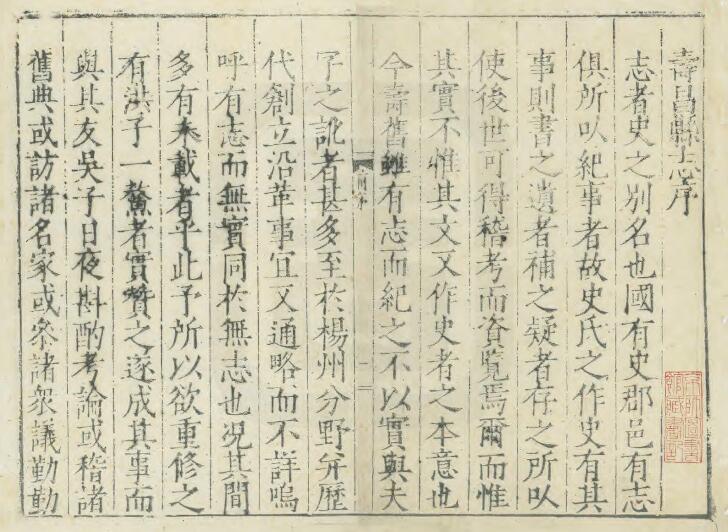 壽昌縣志序
志者史之別名也國有史郡邑有志
俱所以紀事者故史氏之作史有其
事則書之遺者補之疑者存之所以
使後世可得稽考而資覽焉爾而惟
其實不惟其文又作史者之本意也
今壽舊雖有志而紀之不以實與夫
字之訛者甚多至於楊州分野弁歷
代創立沿革事宜又通略而不詳嗚
呼有志而無實同於無志也况其間
多有未載者乎此予所以欲重修之
有洪子一鰲者實贊之遂成其事而
與其友吳子日夜斟酌考論或稽諸
舊典或訪諸名家或叅諸衆議勤勤